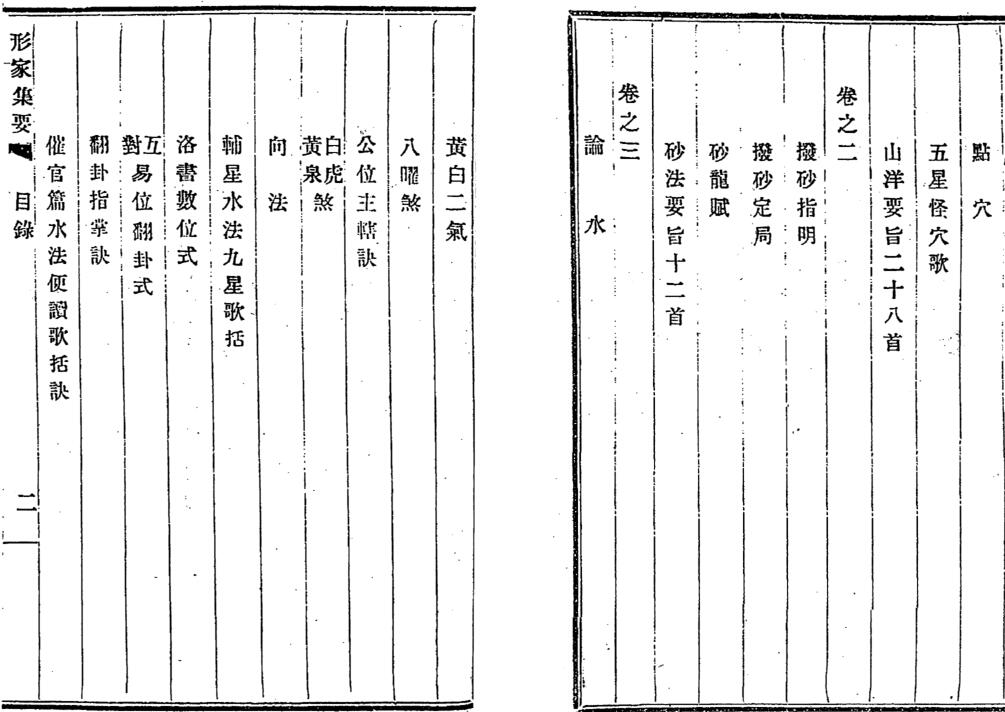 點穴
五星怪穴歌
山洋要旨二十八首
卷之二
撥砂指明
撥砂定局
砂龍賦
砂法要旨十二首
卷之三
論水
黃白二氣
八曜煞
公位主轄訣
白虎黃泉煞
向法
輔星水法九星歌括
洛書數位式
互對易位翻卦式
翻卦指掌訣
催官篇水法便讀歌括訣
形家集要 目錄 二